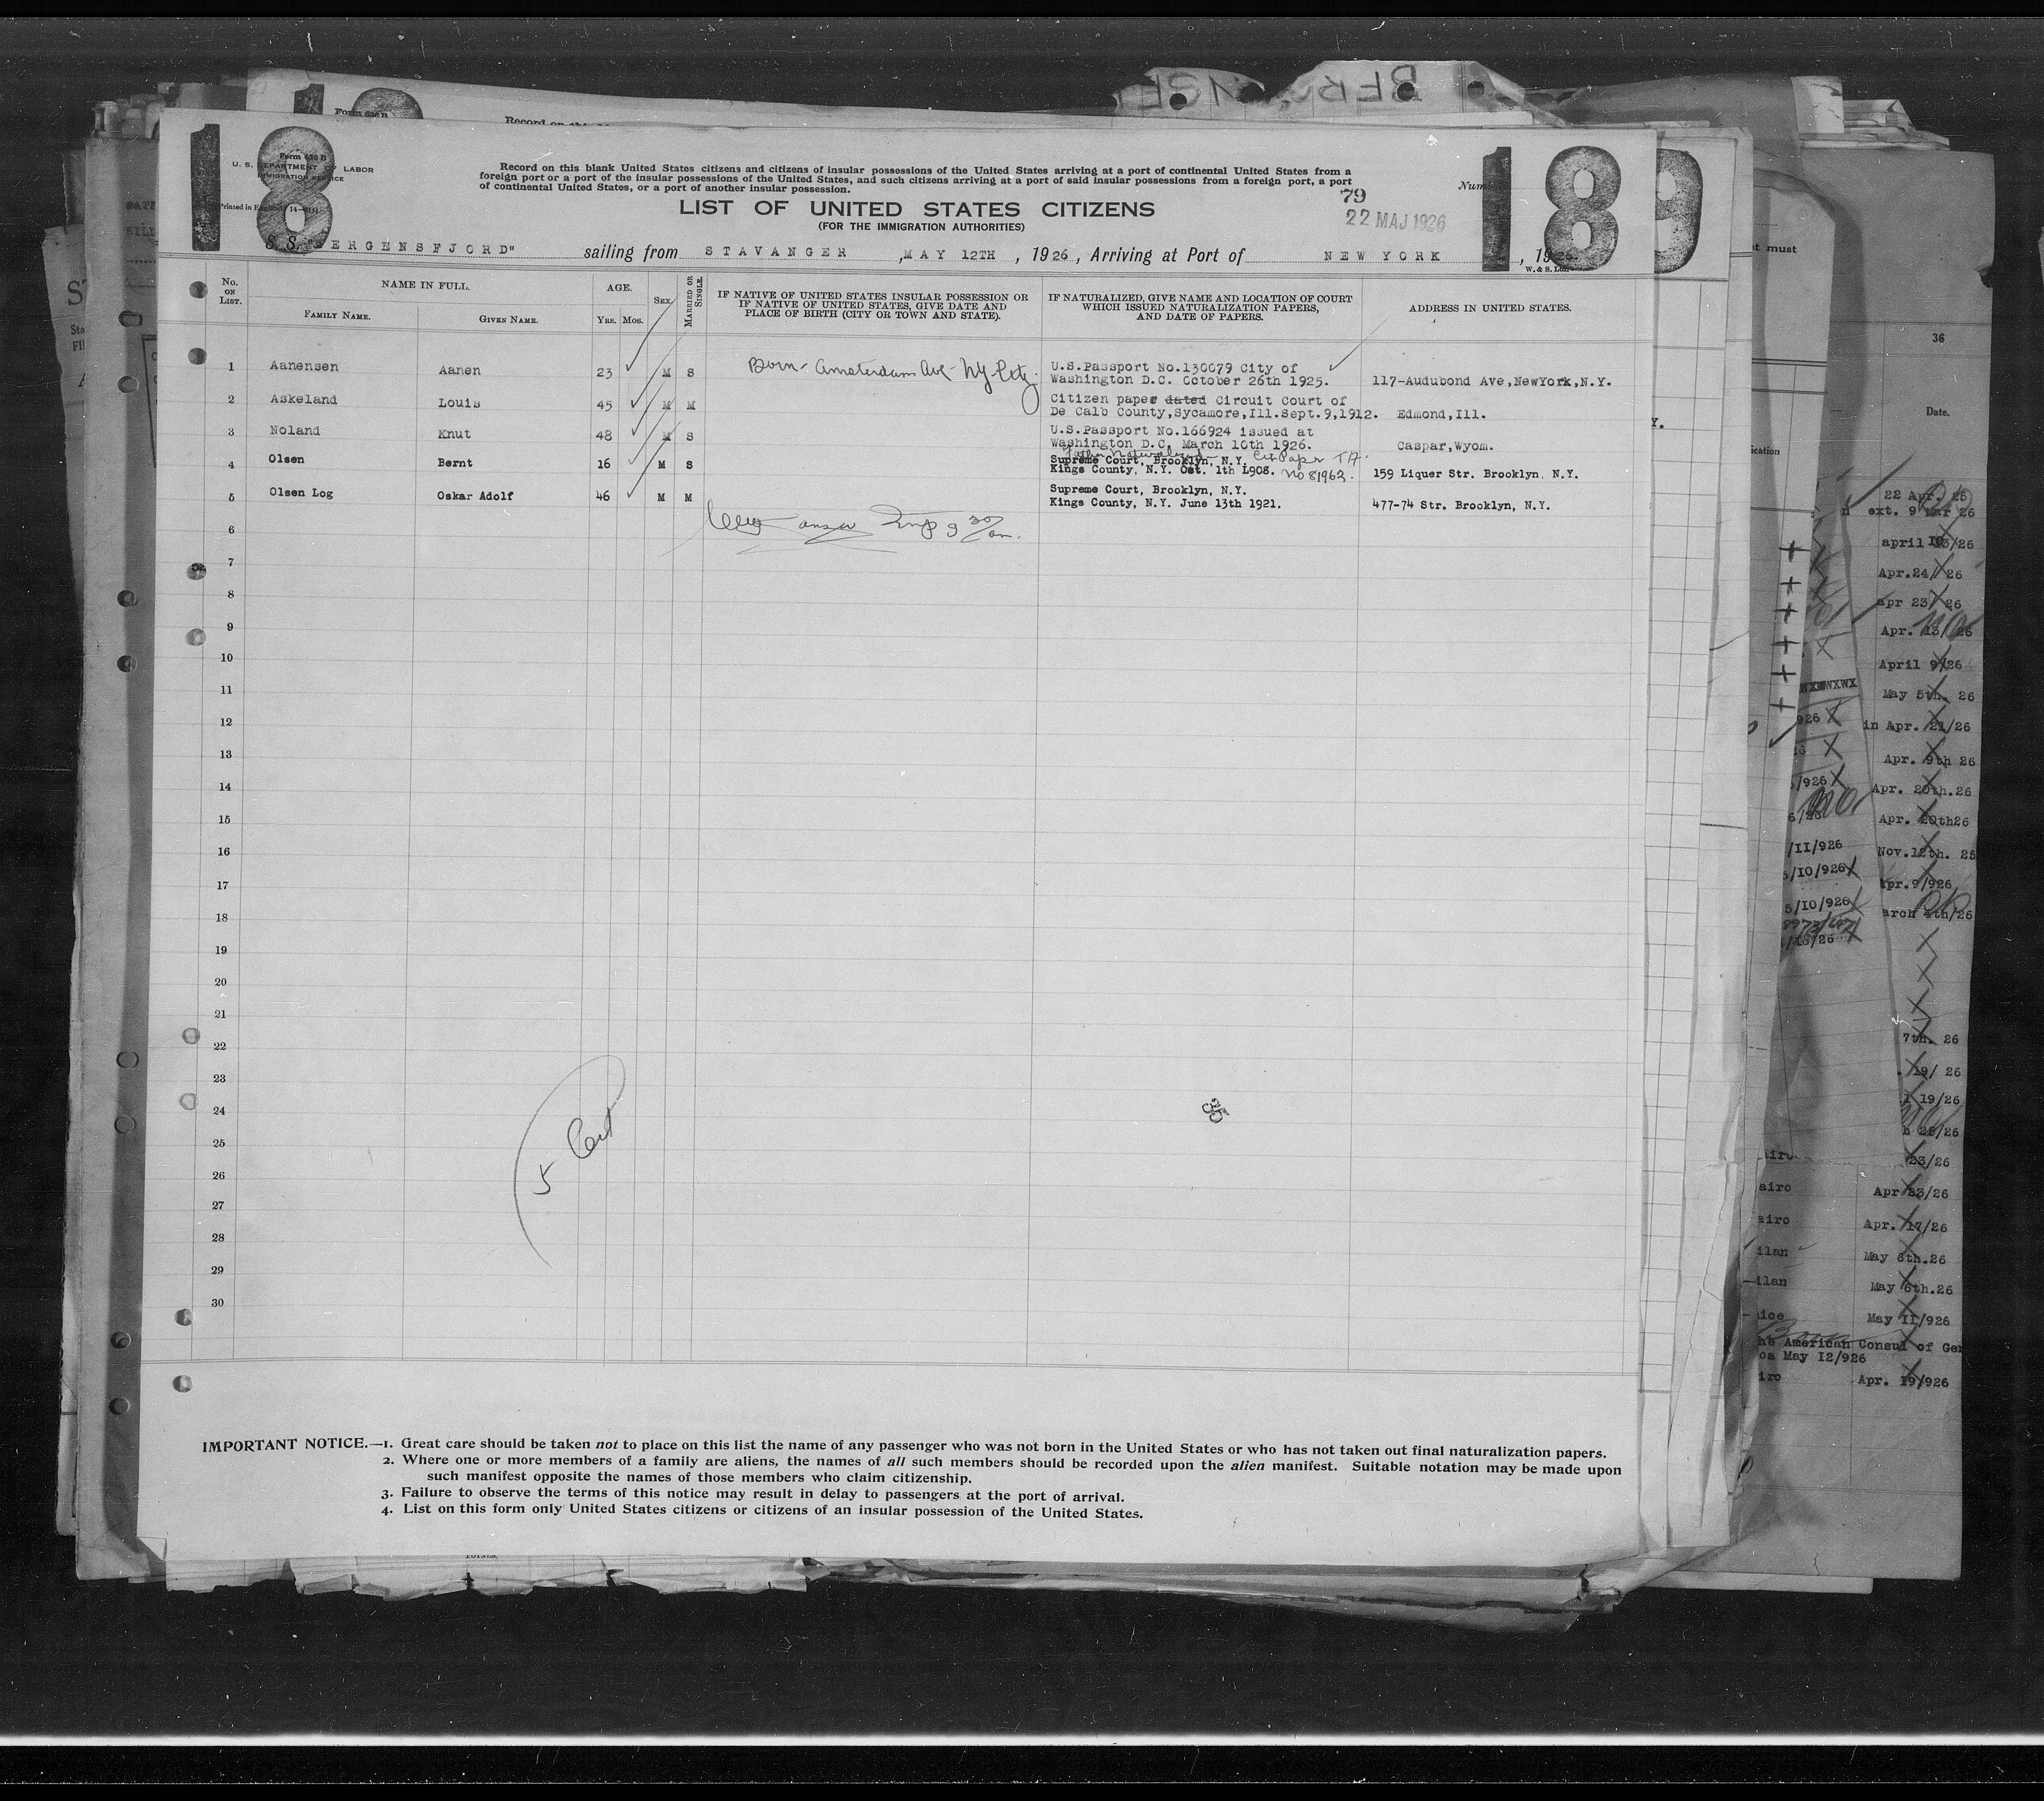 18
Form 630 B
U. S. DEPARTMENT OF LABOR
IMMIGRATION SERVICE
Record on this blank United States citizens and citizens of insular possessions of the United States arriving at a port of continental United States from a
foreign port or a port of the insular possessions of the United States, and such citizens arriving at a port of said insular possessions from a foreign port, a port
of continental United States, or a port of another insular possession.
18
9
79
22 MAJ 1926
LIST OF UNITED STATES CITIZENS
(FOR THE IMMIGRATION AUTHORITIES)
S. S. "BERGENSFJORD" sailing from STAVANGER, MAY 12TH, 1926, Arriving at Port of NEW YORK, 19
W. & S. Ltd.
No. ON LIST. NAME IN FULL. AGE. SEX MARRIED OR SINGLE. IF NATIVE OF UNITED STATES INSULAR POSSESSION OR IF NATIVE OF UNITED STATES, GIVE DATE AND PLACE OF BIRTH (CITY OR TOWN AND STATE). IF NATURALIZED, GIVE NAME AND LOCATION OF COURT WHICH ISSUED NATURALIZATION PAPERS, AND DATE OF PAPERS. ADDRESS IN UNITED STATES.
FAMILY NAME. GIVEN NAME. YRS. MOS.
1 Aanensen Aanen 23 M S Born - Amsterdam Ave - NY City. U.S.Passport No.130079 City of
Washington D.C. October 26th 1925. 117-Audubond Ave,NewYork,N.Y.
2 Askeland Louis 45 M M Citizen paper dated Circuit Court of
De Calb County,Sycamore,Ill.Sept.9,1912. Edmond,Ill.
3 Noland Knut 48 M S U.S.Passport No.166924 issued at
Washington D.C. March 10th 1926. Caspar,Wyom.
Father Naturalized - Cit Paper
4 Olsen Bernt 16 M S Supreme Court, Brooklyn, N.Y.
Kings County, N.Y. Oct. 1th 1908. No 81962. 159 Liquer Str. Brooklyn. N.Y.
5 Olsen Log Oskar Adolf 46 M M Supreme Court, Brooklyn, N.Y.
Kings County, N.Y. June 13th 1921. 477-74 Str. Brooklyn, N.Y.
6
7
8
9
10
11
12
13
14
15
16
17
18
19
20
21
22
23
24
25
26
27
28
29
30
35
5
IMPORTANT NOTICE.—1. Great care should be taken not to place on this list the name of any passenger who was not born in the United States or who has not taken out final naturalization papers.
2. Where one or more members of a family are aliens, the names of all such members should be recorded upon the alien manifest. Suitable notation may be made upon
such manifest opposite the names of those members who claim citizenship.
3. Failure to observe the terms of this notice may result in delay to passengers at the port of arrival.
4. List on this form only United States citizens or citizens of an insular possession of the United States.
36
Date.
22 Apr. 25
ext. 9 Mar 26
Apr.24/ 26
apr 23/ 26
Apr. 13/ 26
April 9/26
May 5th. 26
in Apr. 21/26
Apr. 9th 26
Apr. 20th.26
Apr. 20th26
Nov.12th. 25
Apr.9/926
arch 4th/26
7th. 26
19/ 26
19/26
23/26
Apr 23/26
Apr. 17/26
May 6th.26
May 6th.26
May 11/926
he American Consul of Gen
oa May 12/926
Apr. 19/926